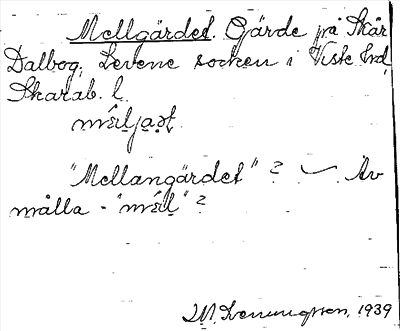 Mellgärdet. Gärde på Skår
Dalbog, Levene socken i Viste hd,
Skarab. l.
"Mellangärdet"? Av
målla - ?
1939